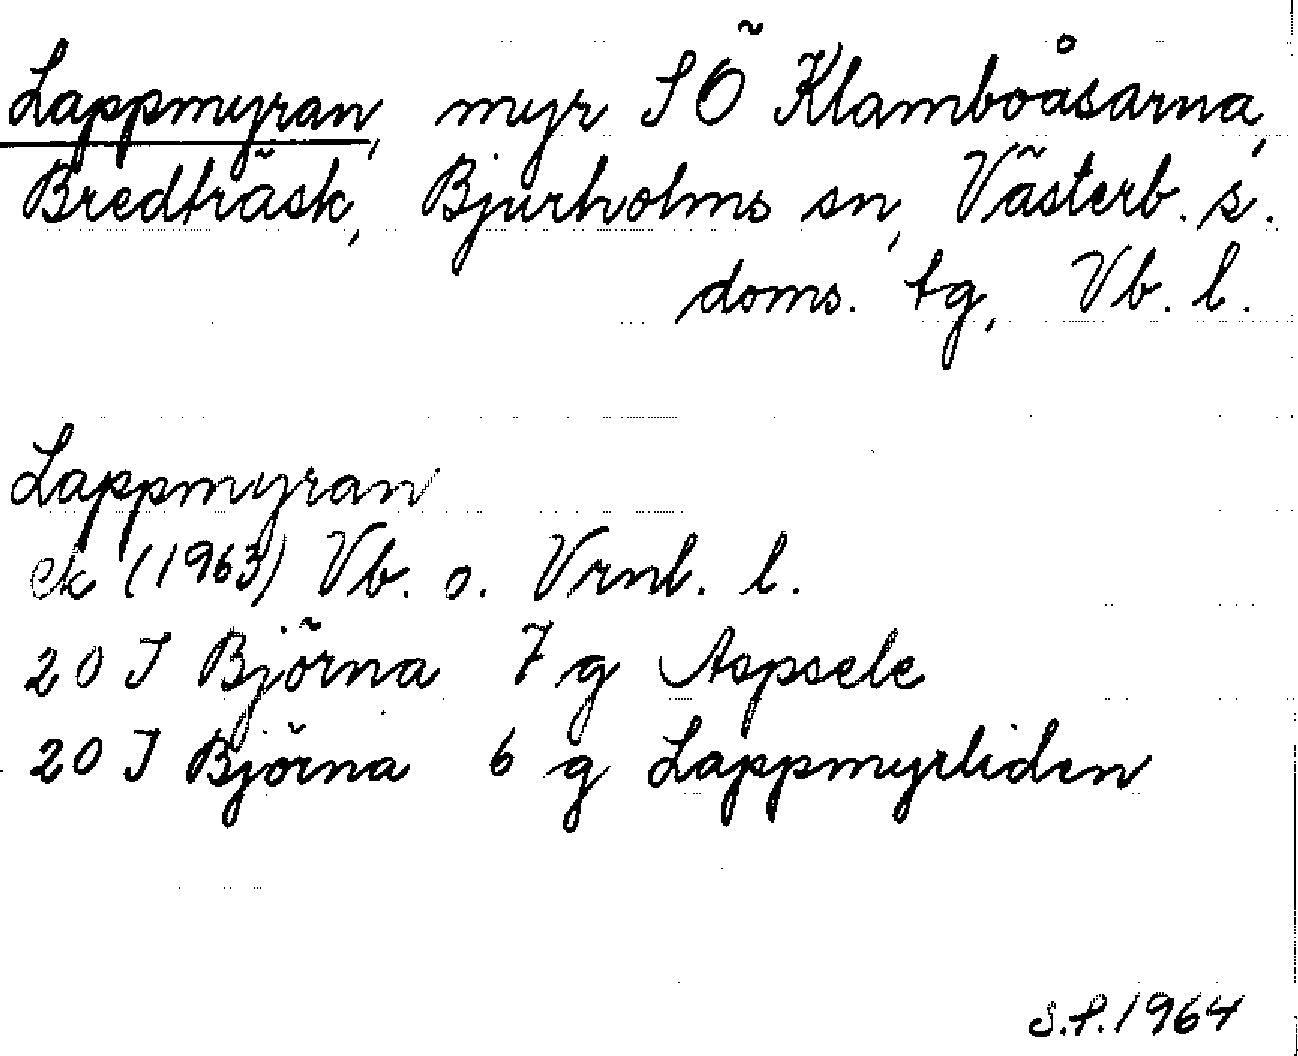 Lappmyran, myr SÖ Klamboåsarna,
Bredträsk, Bjurholms sn, Västerb. s.
doms. tg, Vb. l.
Lappmyran
ek (1963) Vb. o. Vrnl. l.
20 J Björna 7 g Aspsele
20 J Björna 6 g Lappmyrliden
S.P. 1964